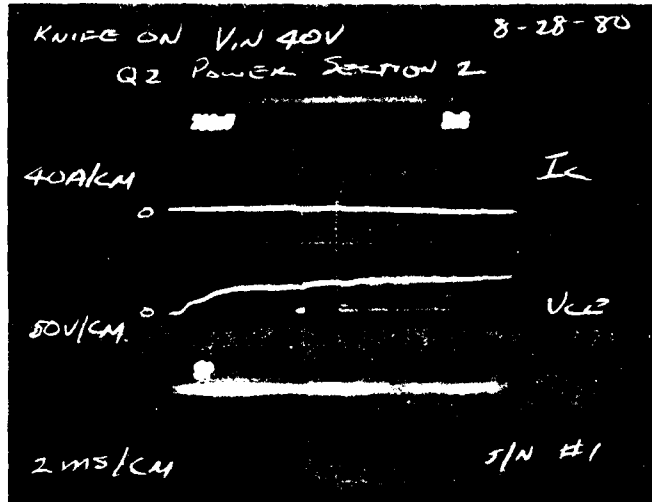 KNIFE ON VIN 40V
8-28-80
Q2 POWER SECTION 2
40A/CM
IC
0
0
50V/CM.
VCE
2 MS/CM
S/N #1